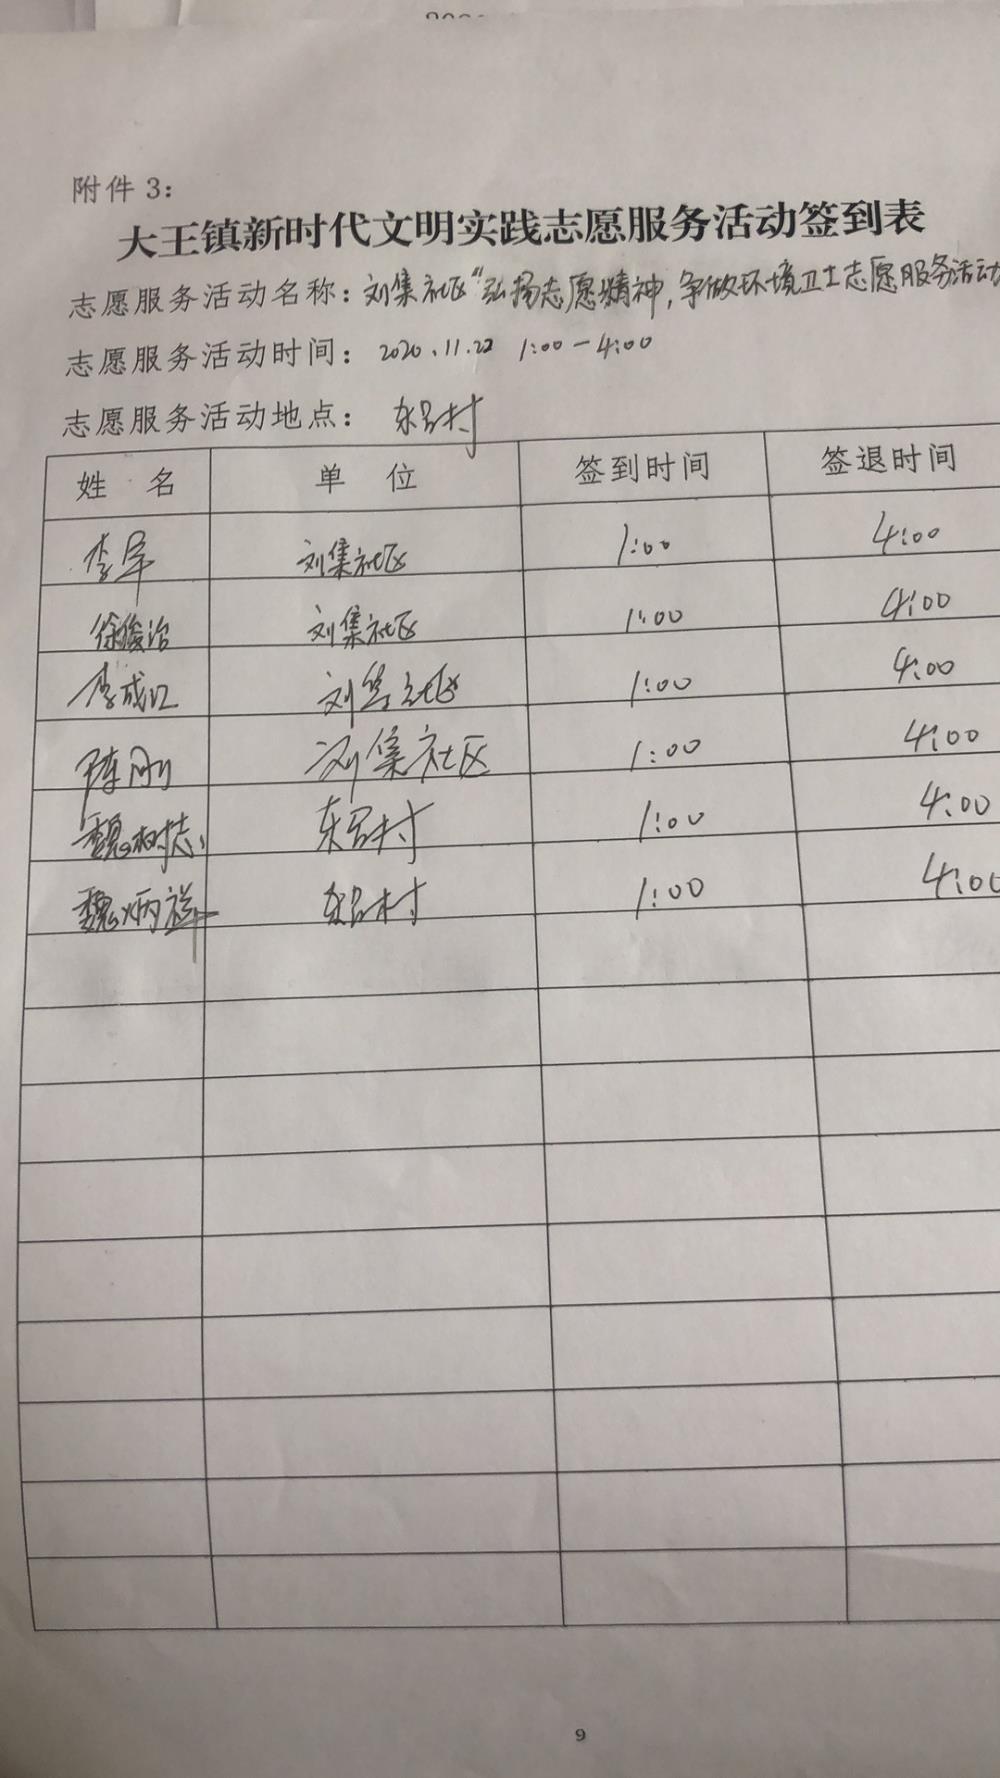 附件 3：
大王镇新时代文明实践志愿服务活动签到表
志愿服务活动名称：刘集社区“弘扬志愿精神，争做环境卫士志愿服务活动
志愿服务活动时间：2020.11.22 1:00-4:00
志愿服务活动地点：东吕村
姓 名 单 位 签到时间 签退时间
李军 刘集社区 1:00 4:00
徐俊治 刘集社区 1:00 4:00
李成江 刘集社区 1:00 4:00
陈刚 刘集社区 1:00 4:00
魏树志 东吕村 1:00 4:00
魏炳祥 东吕村 1:00 4:00
9